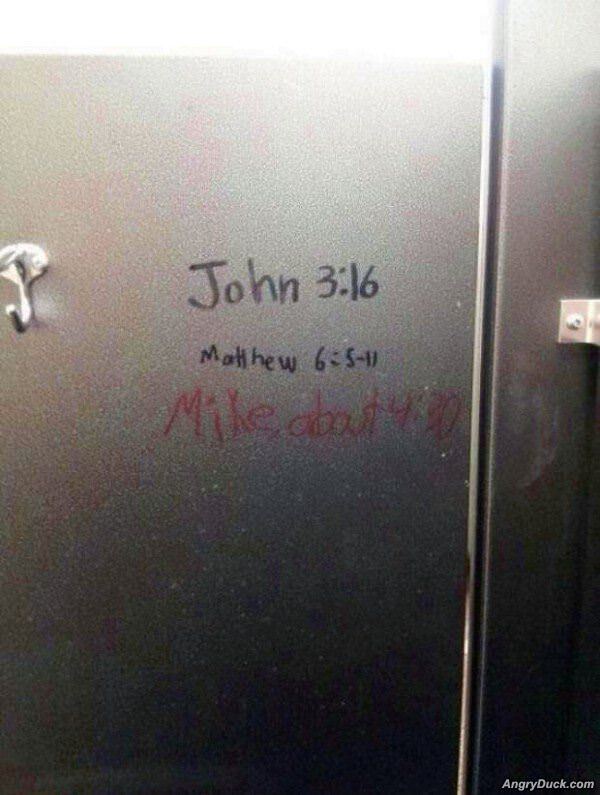 John 3:16
Matthew 6:5-11
Mike, about 4:30
AngryDuck.com